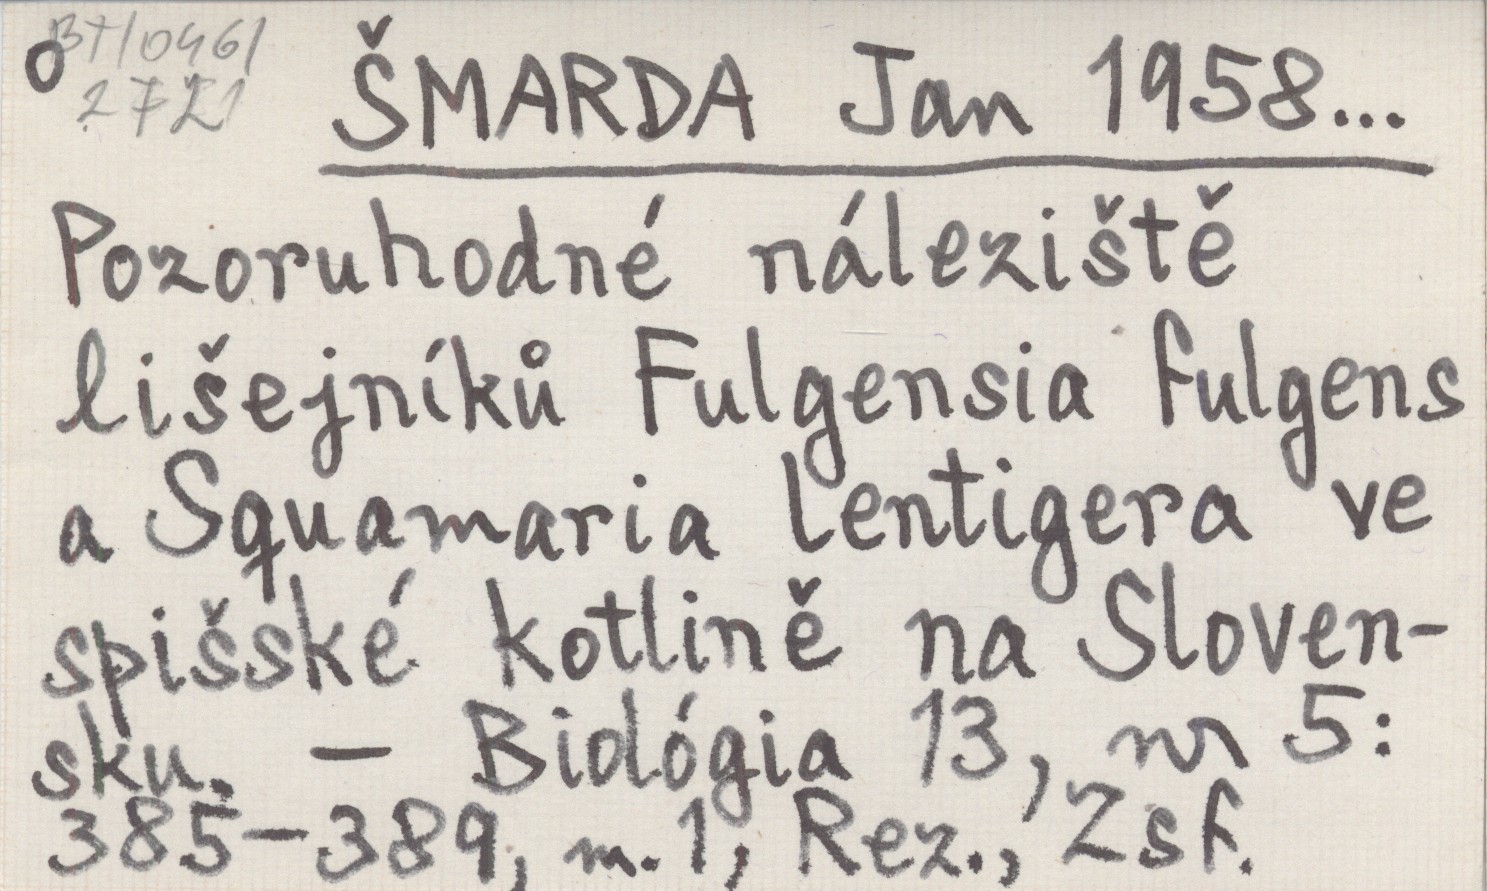 BT/0461
2721
o ŠMARDA Jan 1958...
Pozoruhodné náleziště
lišejníků Fulgensia fulgens
a Squamaria lentigera ve
spišské kotlině na Sloven-
sku. — Biológia 13, nr 5:
385–389, m. 1, Rez., Zsf.